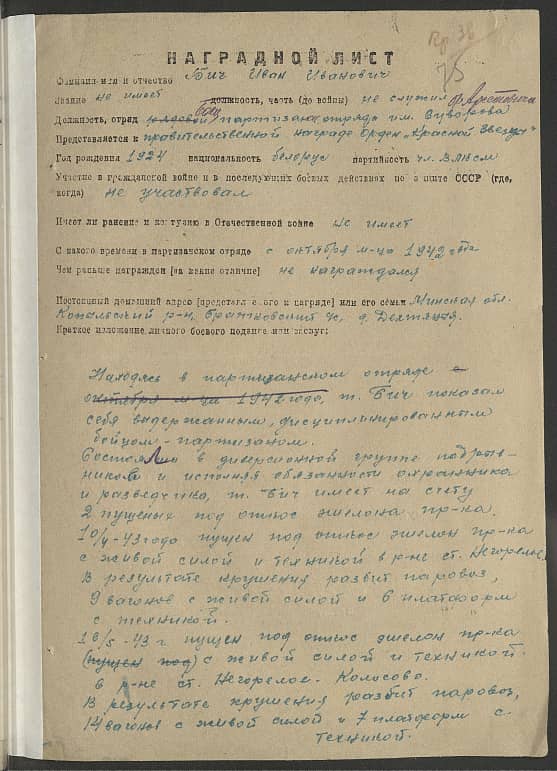 Пр 38
75
НАГРАДНОЙ ЛИСТ
Фамилия-имя и отчество Бич Иван Иванович
Звание не имеет должность, часть (до войны) не служил
Должность, отряд боец партизан отряда им. Суворова
Представляется к правительственной награде Орден "Красной Звезды"
Год рождения 1924 национальность белорус партийность чл. ВЛКСМ
Участие в гражданской войне и в последующих боевых действиях по защите СССР (где,
когда) не участвовал
Имеет ли ранение и контузию в Отечественной войне не имеет
С какого времени в партизанском отряде с октября м-ца 1942 года
Чем раньше награжден [за какие отличие] не награждался
Постоянный домашний адрес [представляемого к награде] или его семьи Минская обл.
Копыльский р-н, с/с, д.
Краткое изложение личного боевого подвига или заслуг:
Находясь в партизанском отряде с
октября м-ца 1942 года, т. Бич показал
себя выдержанным, дисциплинированным
бойцом-партизаном.
Состоял в диверсионной группе подрыв-
ников и исполняя обязанности охранника
и разведчика, т. Бич имеет на счету
2 пущеных под откос эшелона пр-ка.
10/4-43 года пущен под откос эшелон пр-ка
с живой силой и техникой в р-не ст. Негорелое,
В результате крушения разбит паровоз,
9 вагонов с живой силой и 6 платформ
с техникой.
18/5-43 г. пущен под откос эшелон пр-ка
(пущен под) с живой силой и техникой.
в р-не ст. Негорелое-Колосово.
В результате крушения разбит паровоз,
14 вагонов с живой силой и 7 платформ с
техникой.